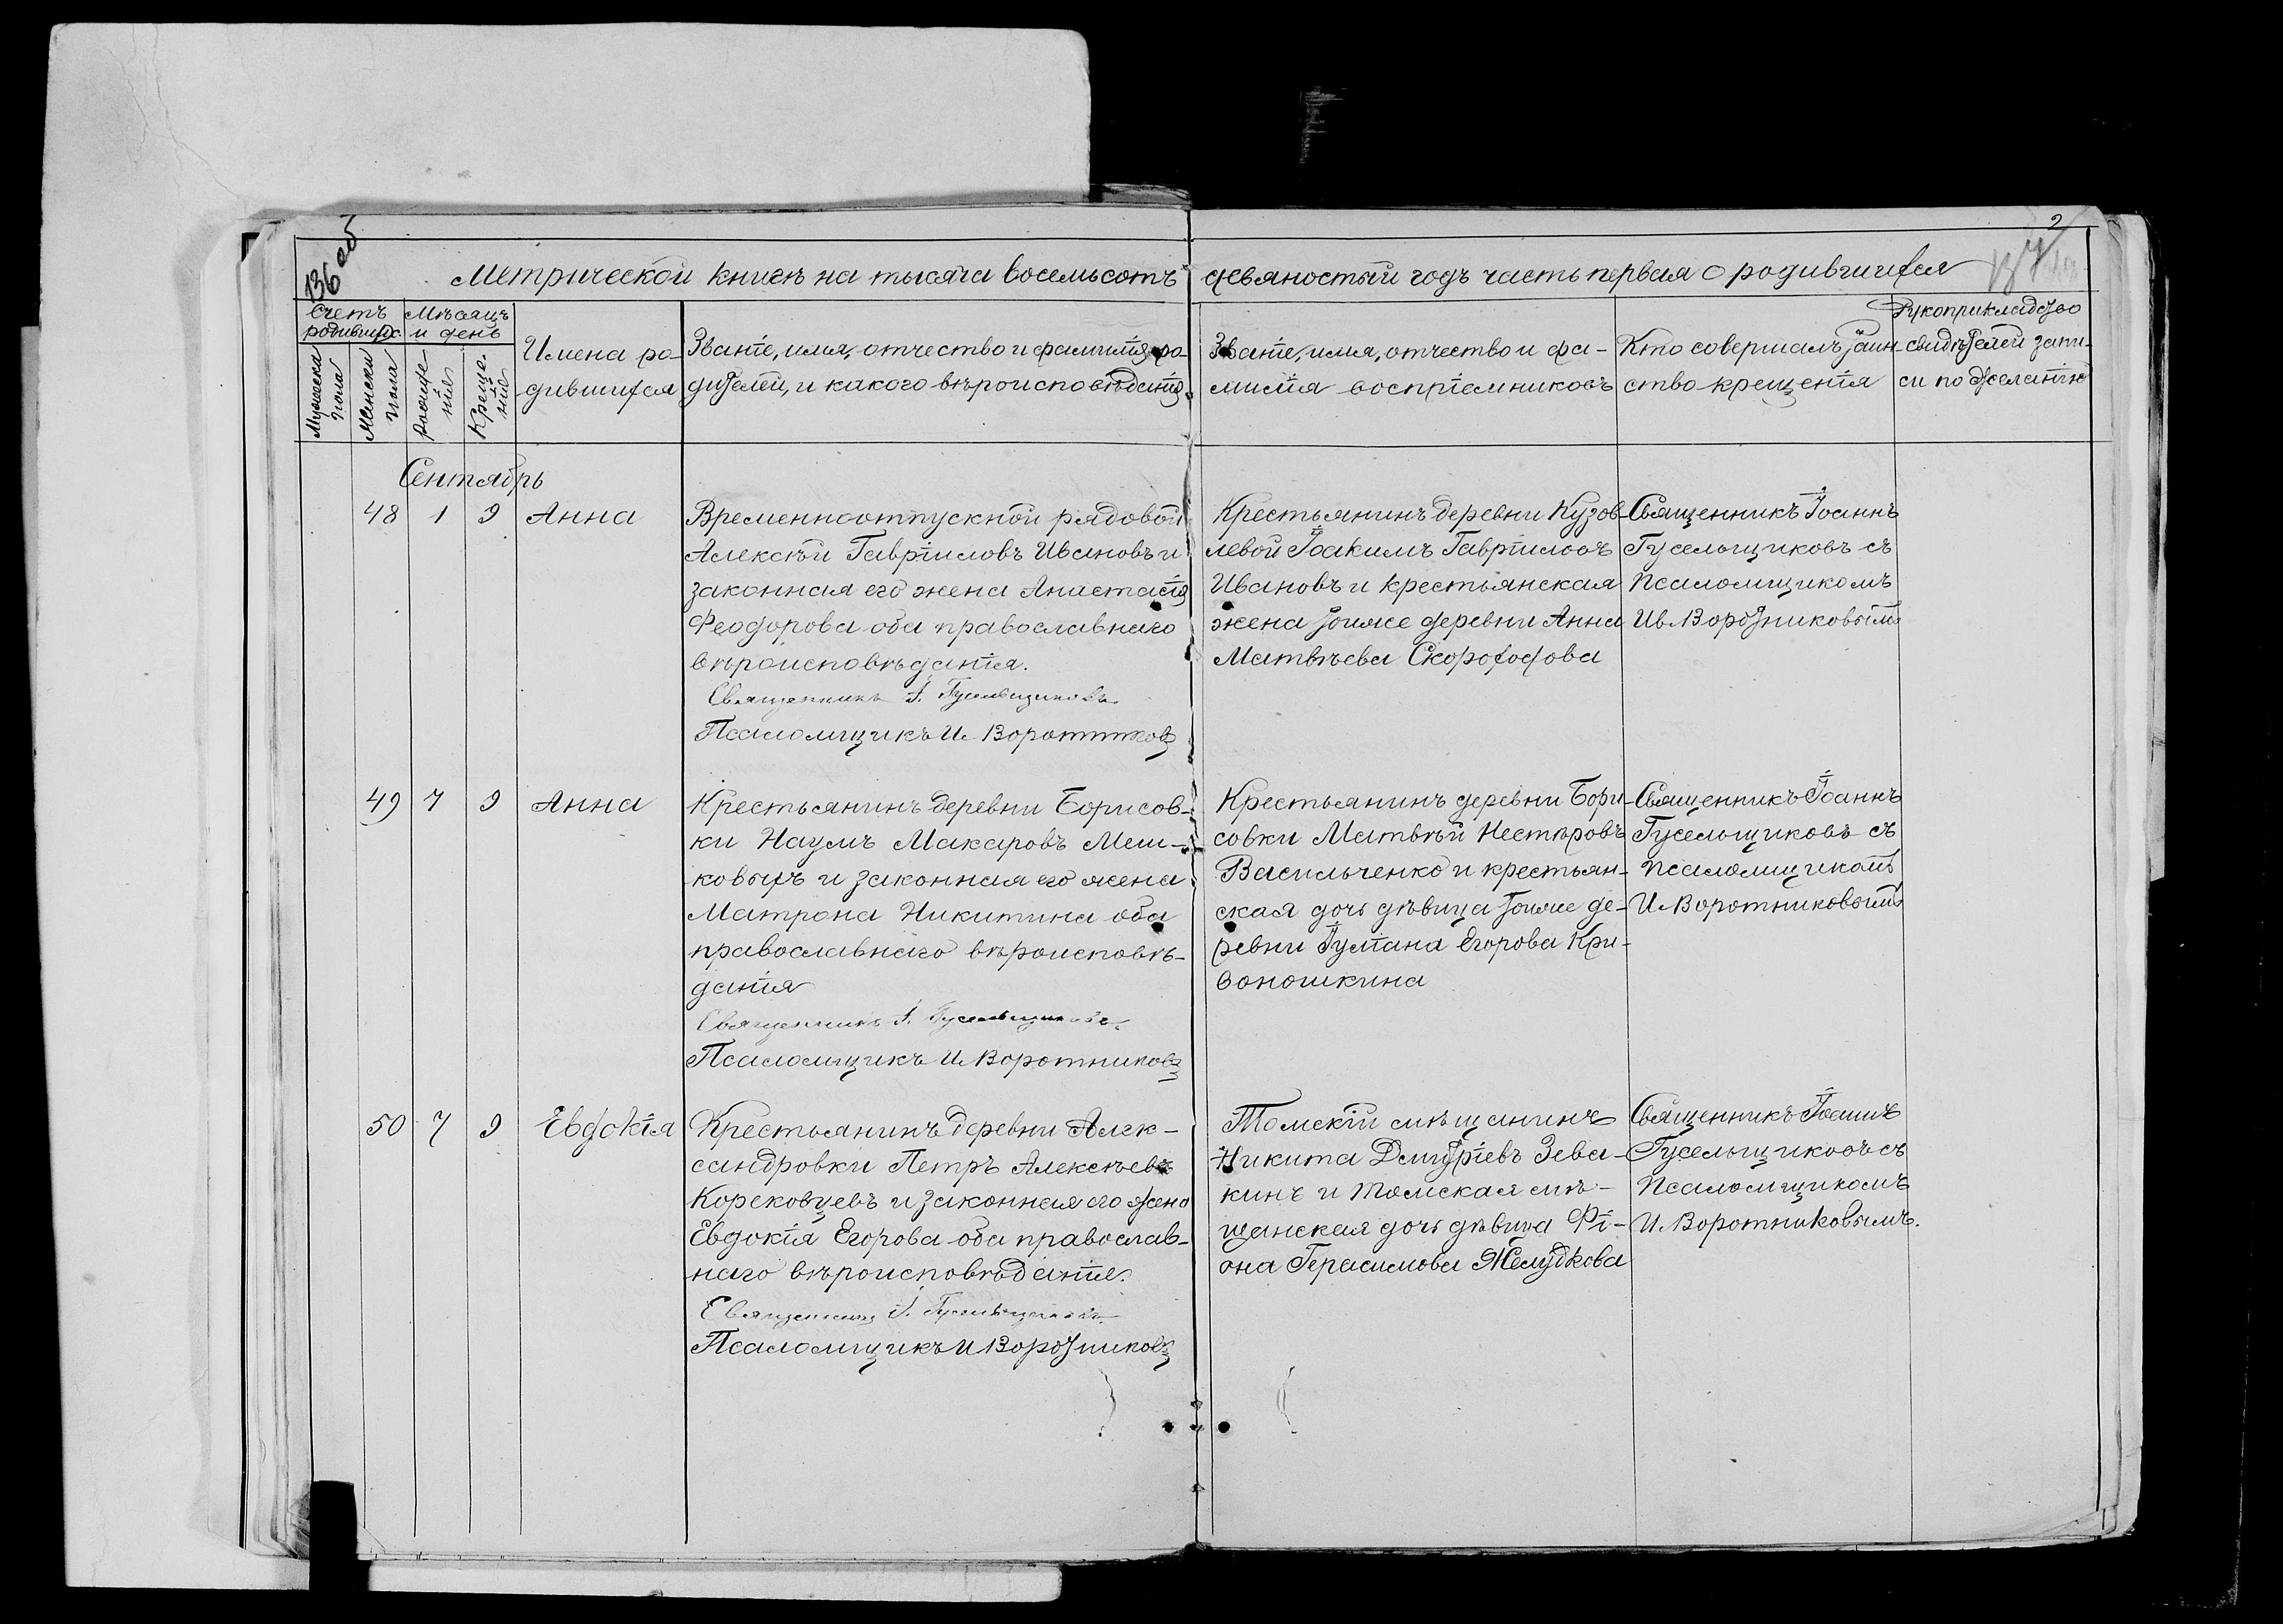 136 об
2
Метрической книгѣ на тысяча восемьсотъ девяностый годъ часть первая о родившихся
Счетъ родившихс
Мѣсяцъ и день
Мужеска пола
Женска пола
Рожденія
Крещенія
Имена родившихся
Званіе, имя, отчество и фамилія ро-
дителей, и какого вѣроисповѣданія.
Званіе, имя, отчество и фа-
милія воспріемниковъ
Кто совершалъ таин-
ство крещенія
Рукоприкладство
свидѣтелей запи-
си по желанію
Сентябрь
48 1 9 Анна
Временноотпускной рядовой
Алексѣй Гавріиловъ Ивановъ и
законная его жена Анастасія
Феодорова оба православнаго
вѣроисповѣданія.
Священникъ І. Гусельщиковъ
Псаломщикъ И Воротниковъ
Крестьянинъ деревни Кузов-
левой Іоакимъ Гавріиловъ
Ивановъ и крестьянская
жена тоиже деревни Анна
Матвѣева Скороходова
Священникъ Іоаннъ
Гусельщиковъ съ
псаломщикомъ
Ив. Воротниковымъ
49 7 9 Анна
Крестьянинъ деревни Борисов-
ки Наумъ Макаровъ Меш-
ковыхъ и законная его жена
Матрона Никитина оба
православнаго вѣроисповѣ-
данія
Священникъ І. Гусельщиковъ
Псаломщикъ И Воротниковъ
Крестьянинъ деревни Бори-
совки Матвѣй Нестѣровъ
Васильченко и крестьян-
ская дочь дѣвица тоиже де-
ревни Іуліана Егорова Кри-
воношкина
Священникъ Іоаннъ
Гусельщиковъ съ
псаломщикомъ
И. Воротниковымъ
50 7 9 Евдокія
Крестьянинъ деревни Алек-
сандровки Петръ Алексѣевъ
Корековцевъ и законная его жена
Евдокія Егорова оба православ-
наго вѣроисповѣданія.
Священникъ І. Гусельщиковъ
Псаломщикъ И Воротниковъ
Томскій мѣщанинъ
Никита Дмитріевъ Зева-
кинъ и томская мѣ-
щанская дочь дѣвица Фі-
она Герасимова Желудкова
Священникъ Іоаннъ
Гусельщиковъ съ
псаломщикомъ
И. Воротниковымъ.